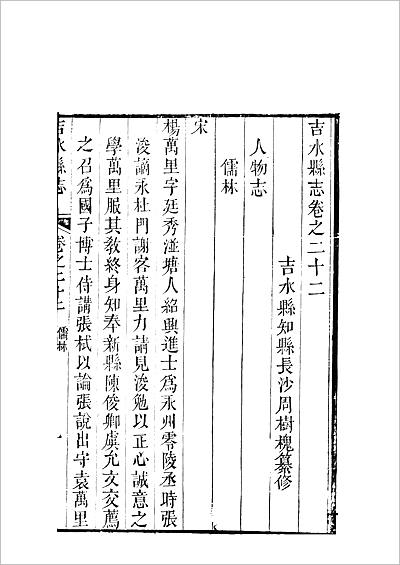 吉水縣志卷之二十二
吉水縣知縣長沙周樹槐纂修
人物志
儒林
宋
楊萬里字廷秀湴塘人紹興進士爲永州零陵丞時張
浚謫永杜門謝客萬里力請見浚勉以正心誠意之
學萬里服其敎終身知奉新縣陳俊卿虞允文交薦
之召爲國子博士侍講張栻以論張說出守袁萬里
吉水縣志
卷之二十二 儒林
一